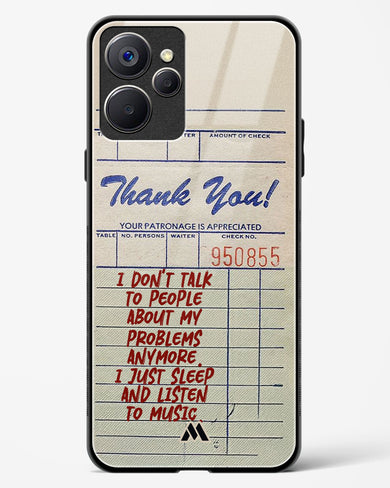 TER AMOUNT OF CHECK
Thank You!
YOUR PATRONAGE IS APPRECIATED
TABLE NO. PERSONS WAITER CHECK NO.
950855
I DON'T TALK
TO PEOPLE
ABOUT MY
PROBLEMS
ANYMORE.
I JUST SLEEP
AND LISTEN
TO MUSIC.